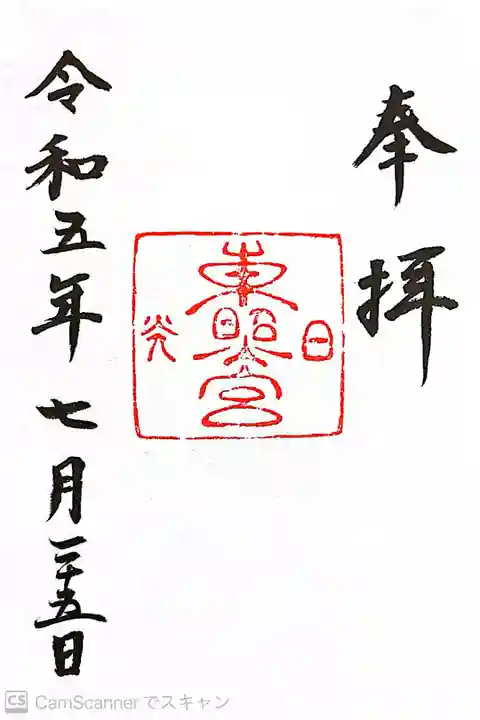 奉拝
日光
東照宮
令和五年七月二十五日
CS CamScanner でスキャン